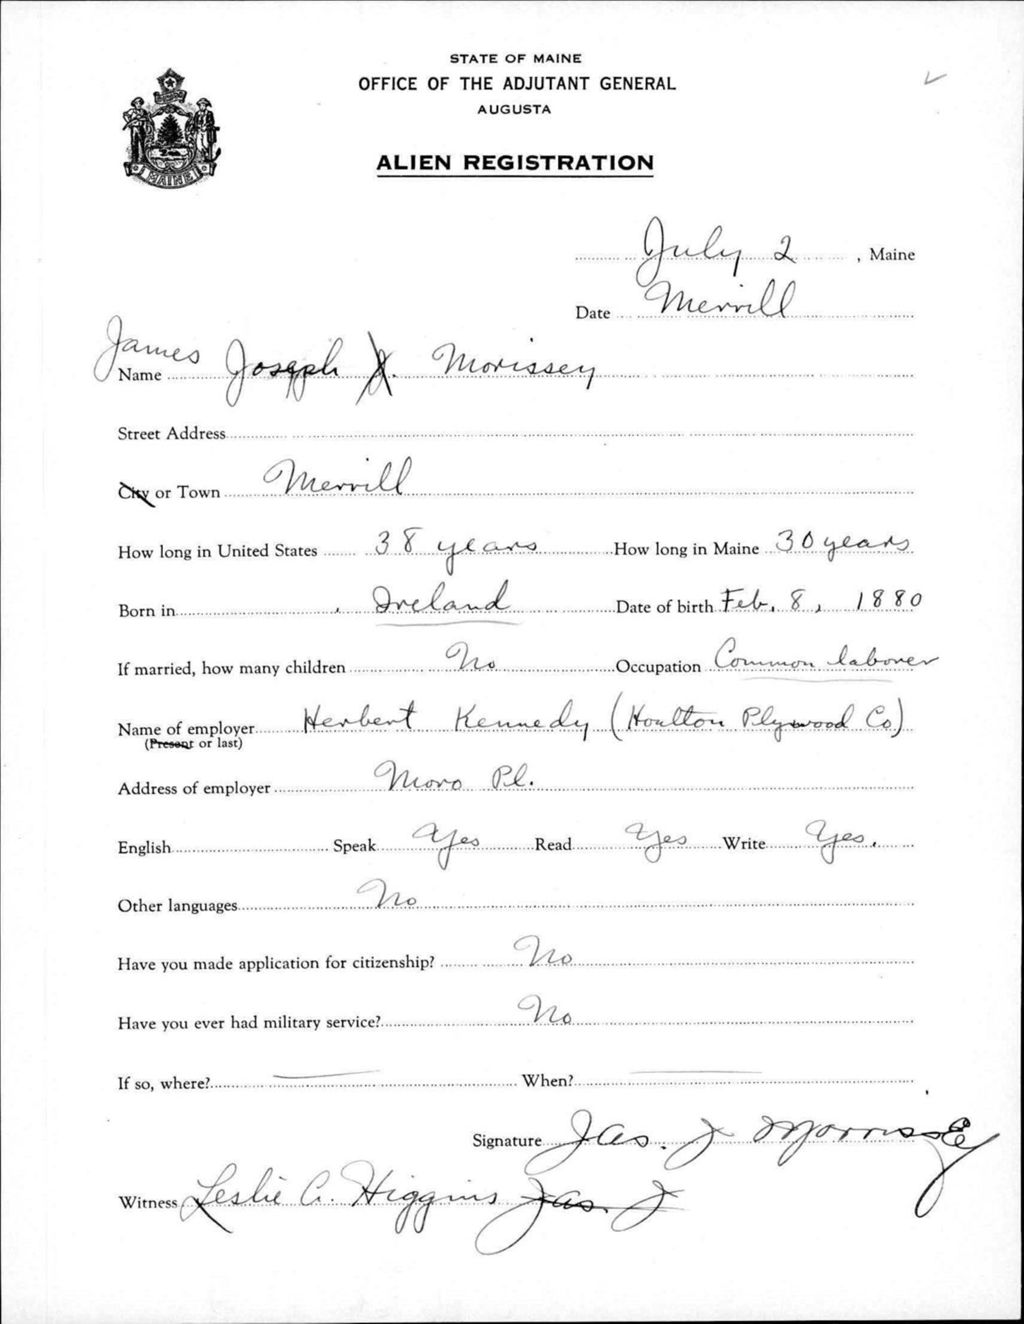 STATE OF MAINE
OFFICE OF THE ADJUTANT GENERAL
AUGUSTA
ALIEN REGISTRATION
MAINE
July 2, Maine
Date Merrill
James
Name Joseph J. Morissey
Street Address
City or Town Merrill
How long in United States 38 years How long in Maine 30 years
Born in Ireland Date of birth Feb. 8, 1880
If married, how many children No Occupation Common laborer
Name of employer Herbert Kennedy (Houlton Plywood Co)
(Present or last)
Address of employer Moro Pl.
English Speak Yes Read Yes Write Yes.
Other languages No
Have you made application for citizenship? No
Have you ever had military service? No
If so, where? When?
Signature Jas. J Morrissey
Witness Leslie A. Higgins Jas. J